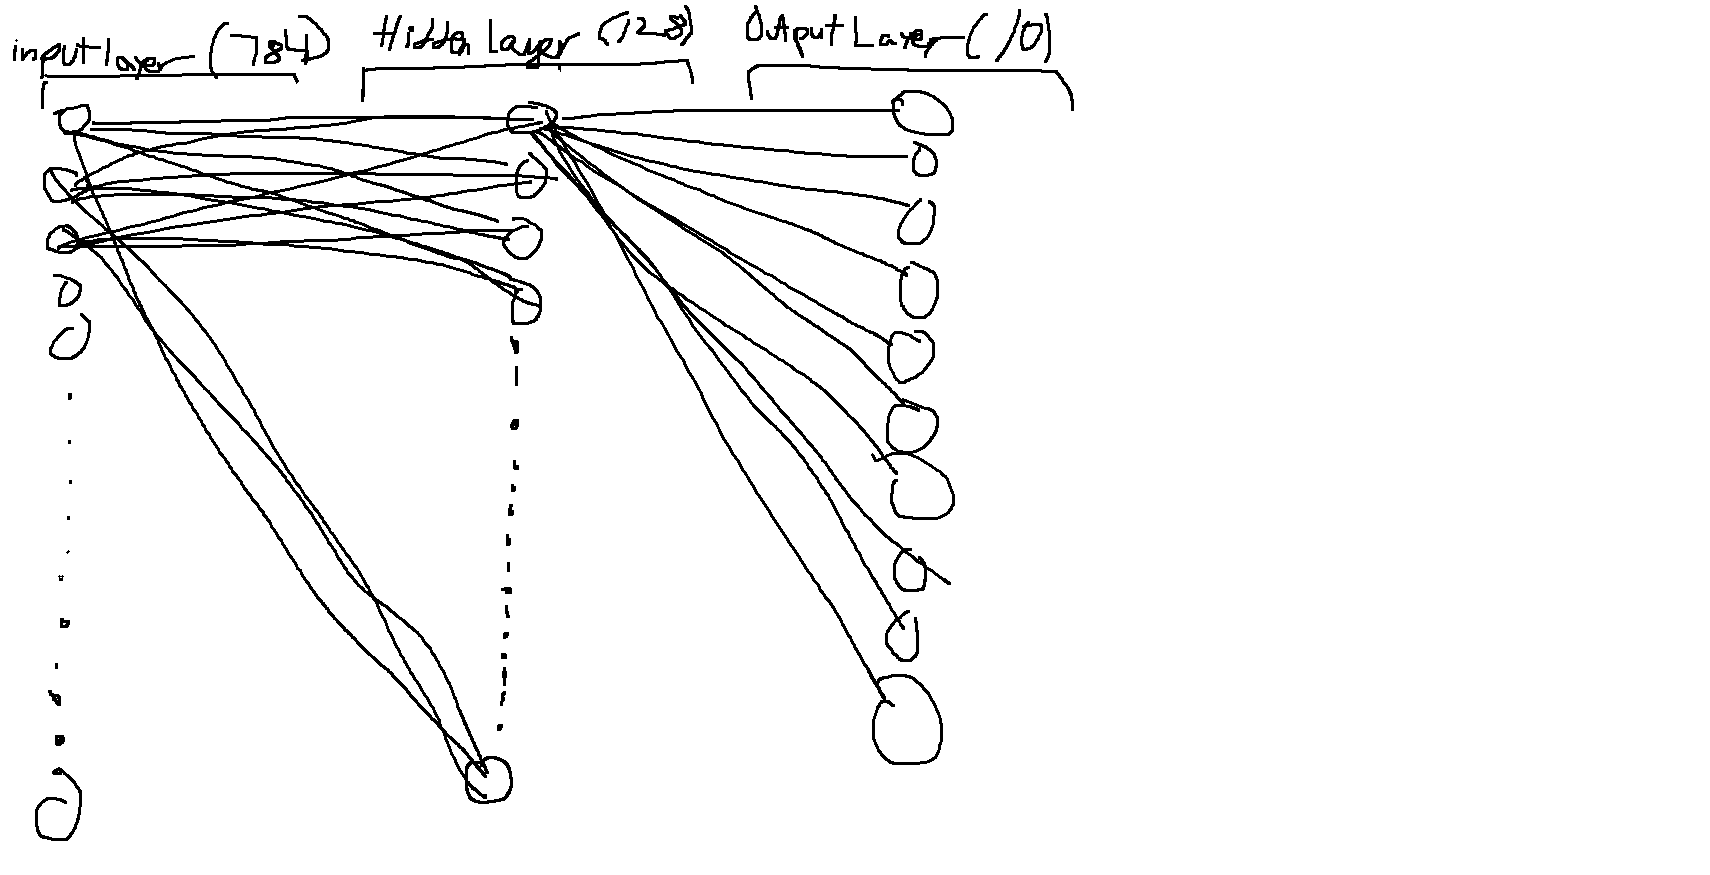 input layer (784) Hidden Layer (128) Output Layer (10)